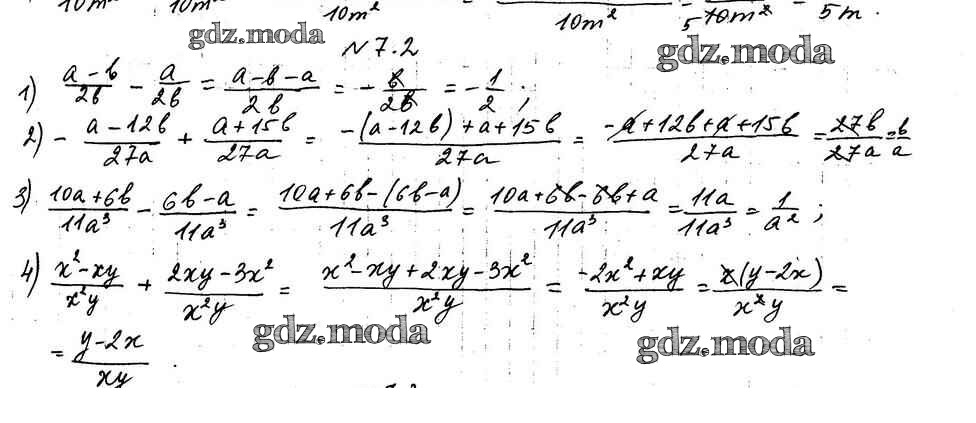 10m² 10m² 10m² 10m² 5 10m² 5m.
gdz.moda gdz.moda
№7.2
1) (a-b)/2b - a/2b = (a-b-a)/2b = -b/2b = -1/2;
2) - (a-12b)/27a + (a+15b)/27a = (-(a-12b)+a+15b)/27a = (-a+12b+a+15b)/27a = 27b/27a = b/a
3) (10a+6b)/11a³ - (6b-a)/11a³ = (10a+6b-(6b-a))/11a³ = (10a+6b-6b+a)/11a³ = 11a/11a³ = 1/a²;
4) (x²-xy)/x²y + (2xy-3x²)/x²y = (x²-xy+2xy-3x²)/x²y = (-2x²+xy)/x²y = x(y-2x)/x²y =
gdz.moda gdz.moda
= (y-2x)/xy.